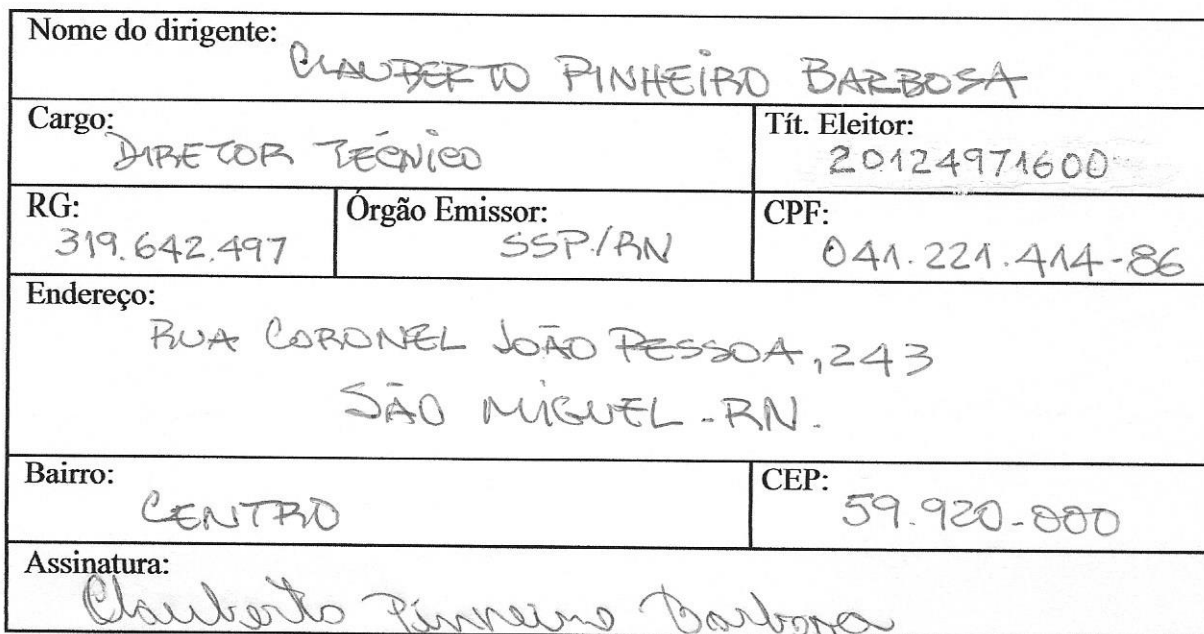 Nome do dirigente:
CLAUBERTO PINHEIRO BARBOSA
Cargo:
DIRETOR TÉCNICO
Tít. Eleitor:
20124971600
RG:
319.642.497
Órgão Emissor:
SSP/RN
CPF:
041.221.414-86
Endereço:
RUA CORONEL JOÃO PESSOA, 243
SÃO MIGUEL - RN.
Bairro:
CENTRO
CEP:
59.920-000
Assinatura:
Clauberto Pinheiro Barbosa